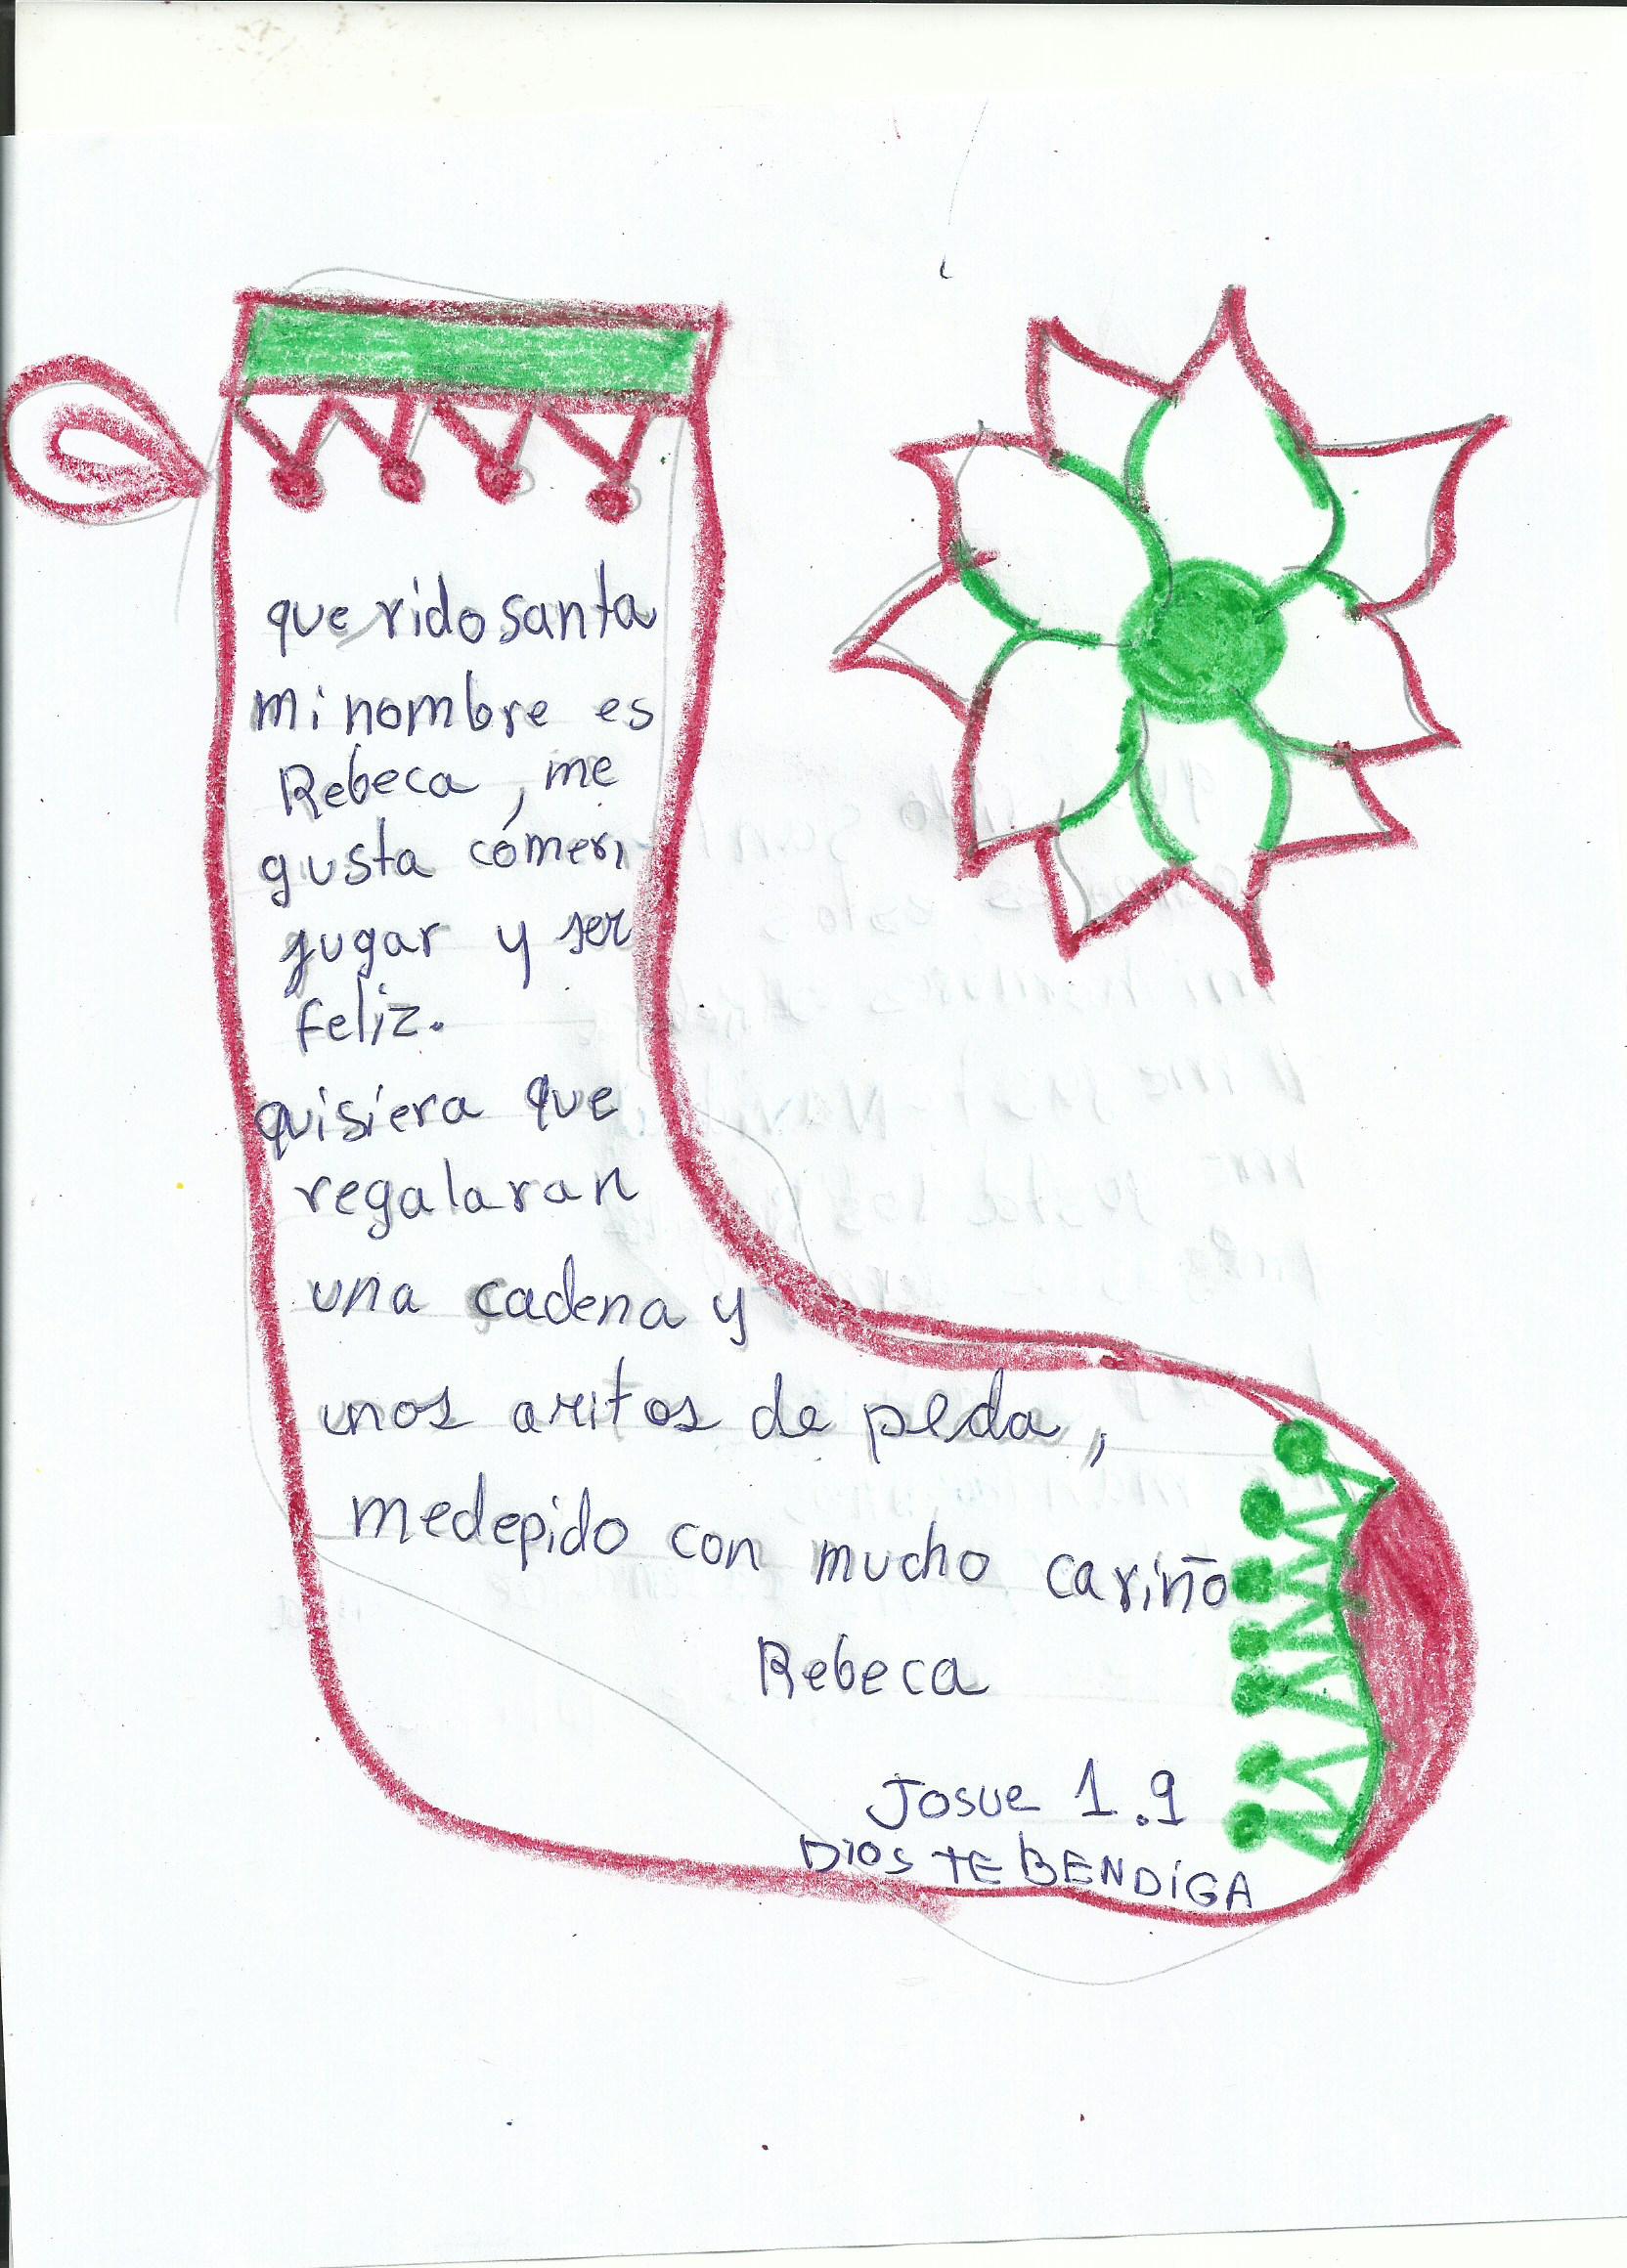 que rido santa
mi nombre es
Rebeca, me
gusta comer,
jugar y ser
feliz.
quisiera que
regalaran
una cadena y
unos aritos de peda,
medepido con mucho cariño
Rebeca
Josue 1.9
DIOS TE BENDIGA